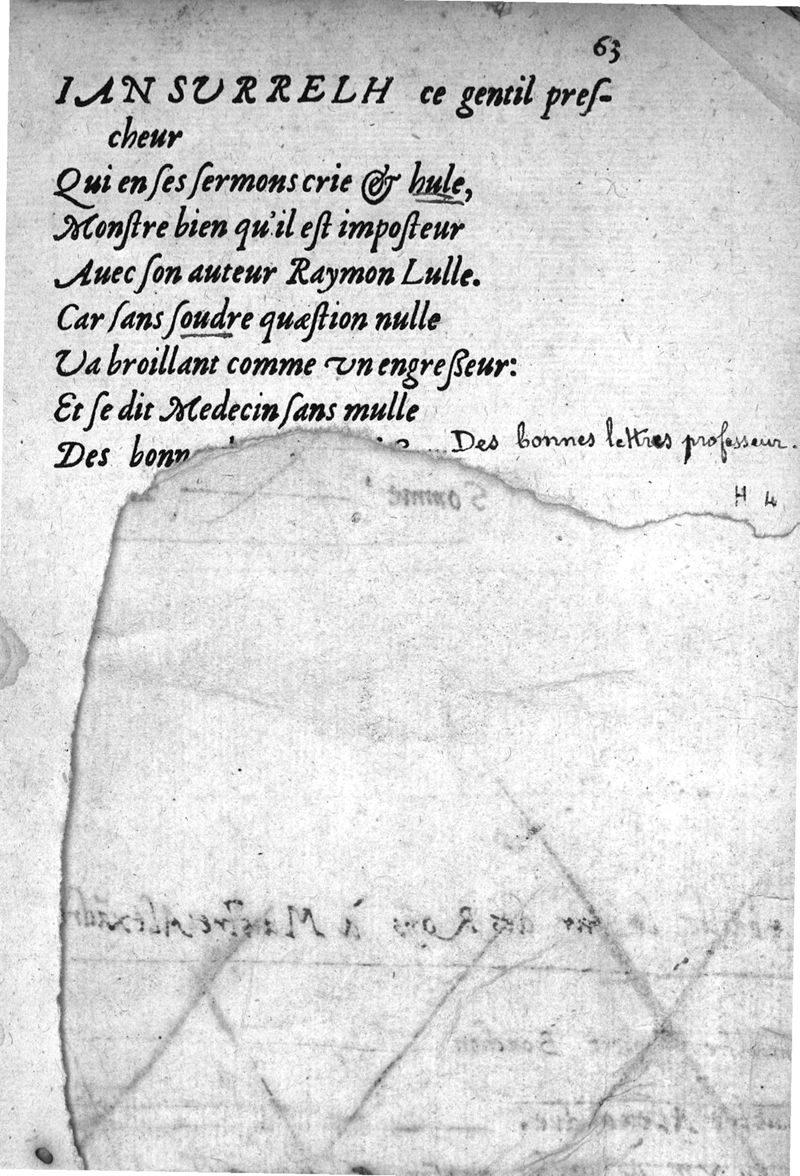 63
IAN SURRELH ce gentil preſ-
cheur
Qui en ſes ſermons crie & hule,
Monſtre bien qu'il eſt impoſteur
Auec ſon auteur Raymon Lulle.
Car ſans ſoudre quæſtion nulle
Va broillant comme vn engreſſeur:
Et ſe dit Medecin ſans mulle
Des bonn
Des bonnes lettres professeur.
H 4